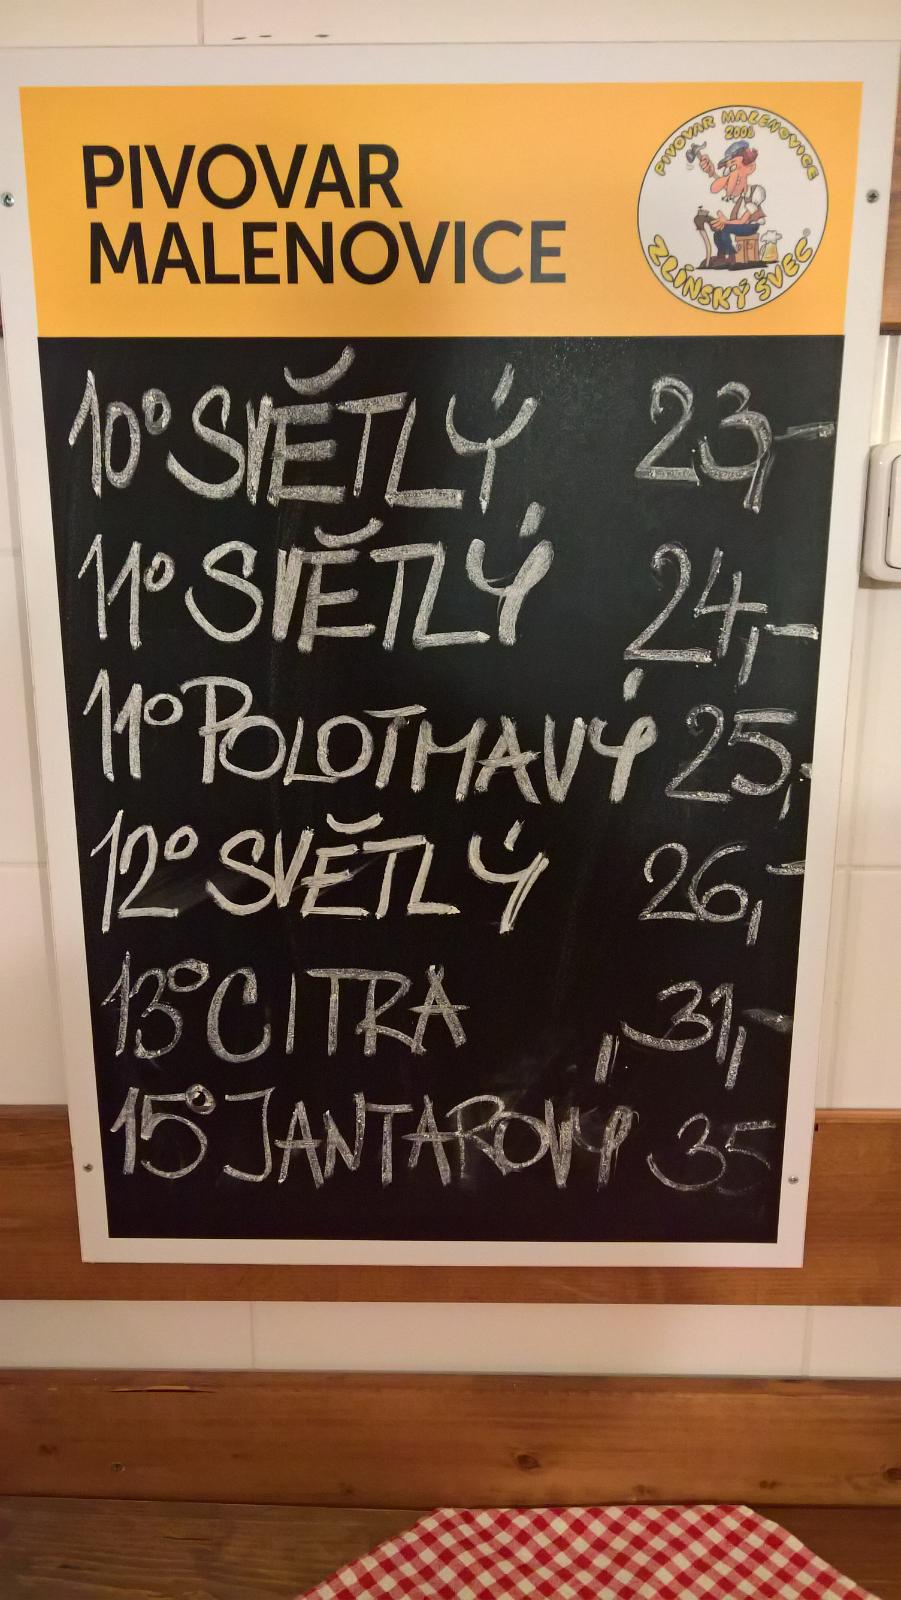 PIVOVAR
MALENOVICE
PIVOVAR MALENOVICE
2008
ZLÍNSKÝ ŠVEC
10° SVĚTLÝ 23,-
11° SVĚTLÝ 24,-
11° POLOTMAVÝ 25,-
12° SVĚTLÝ 26,-
13° CITRA 31,-
15° JANTAROVÝ 35